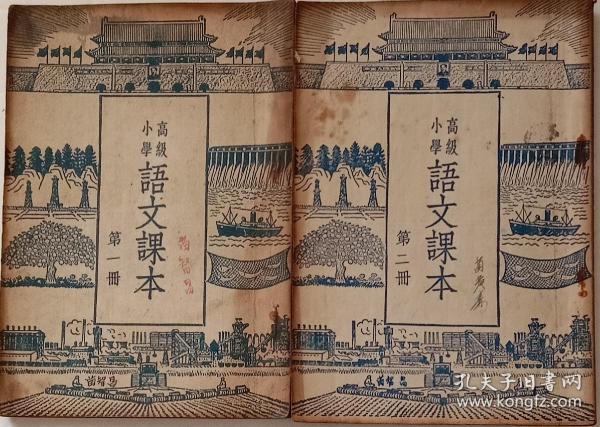 高級
小學
語文課本
第一冊
苗智昌
苗智昌
高級
小學
語文課本
第二冊
苗智昌
孔夫子旧书网
www.kongfz.com